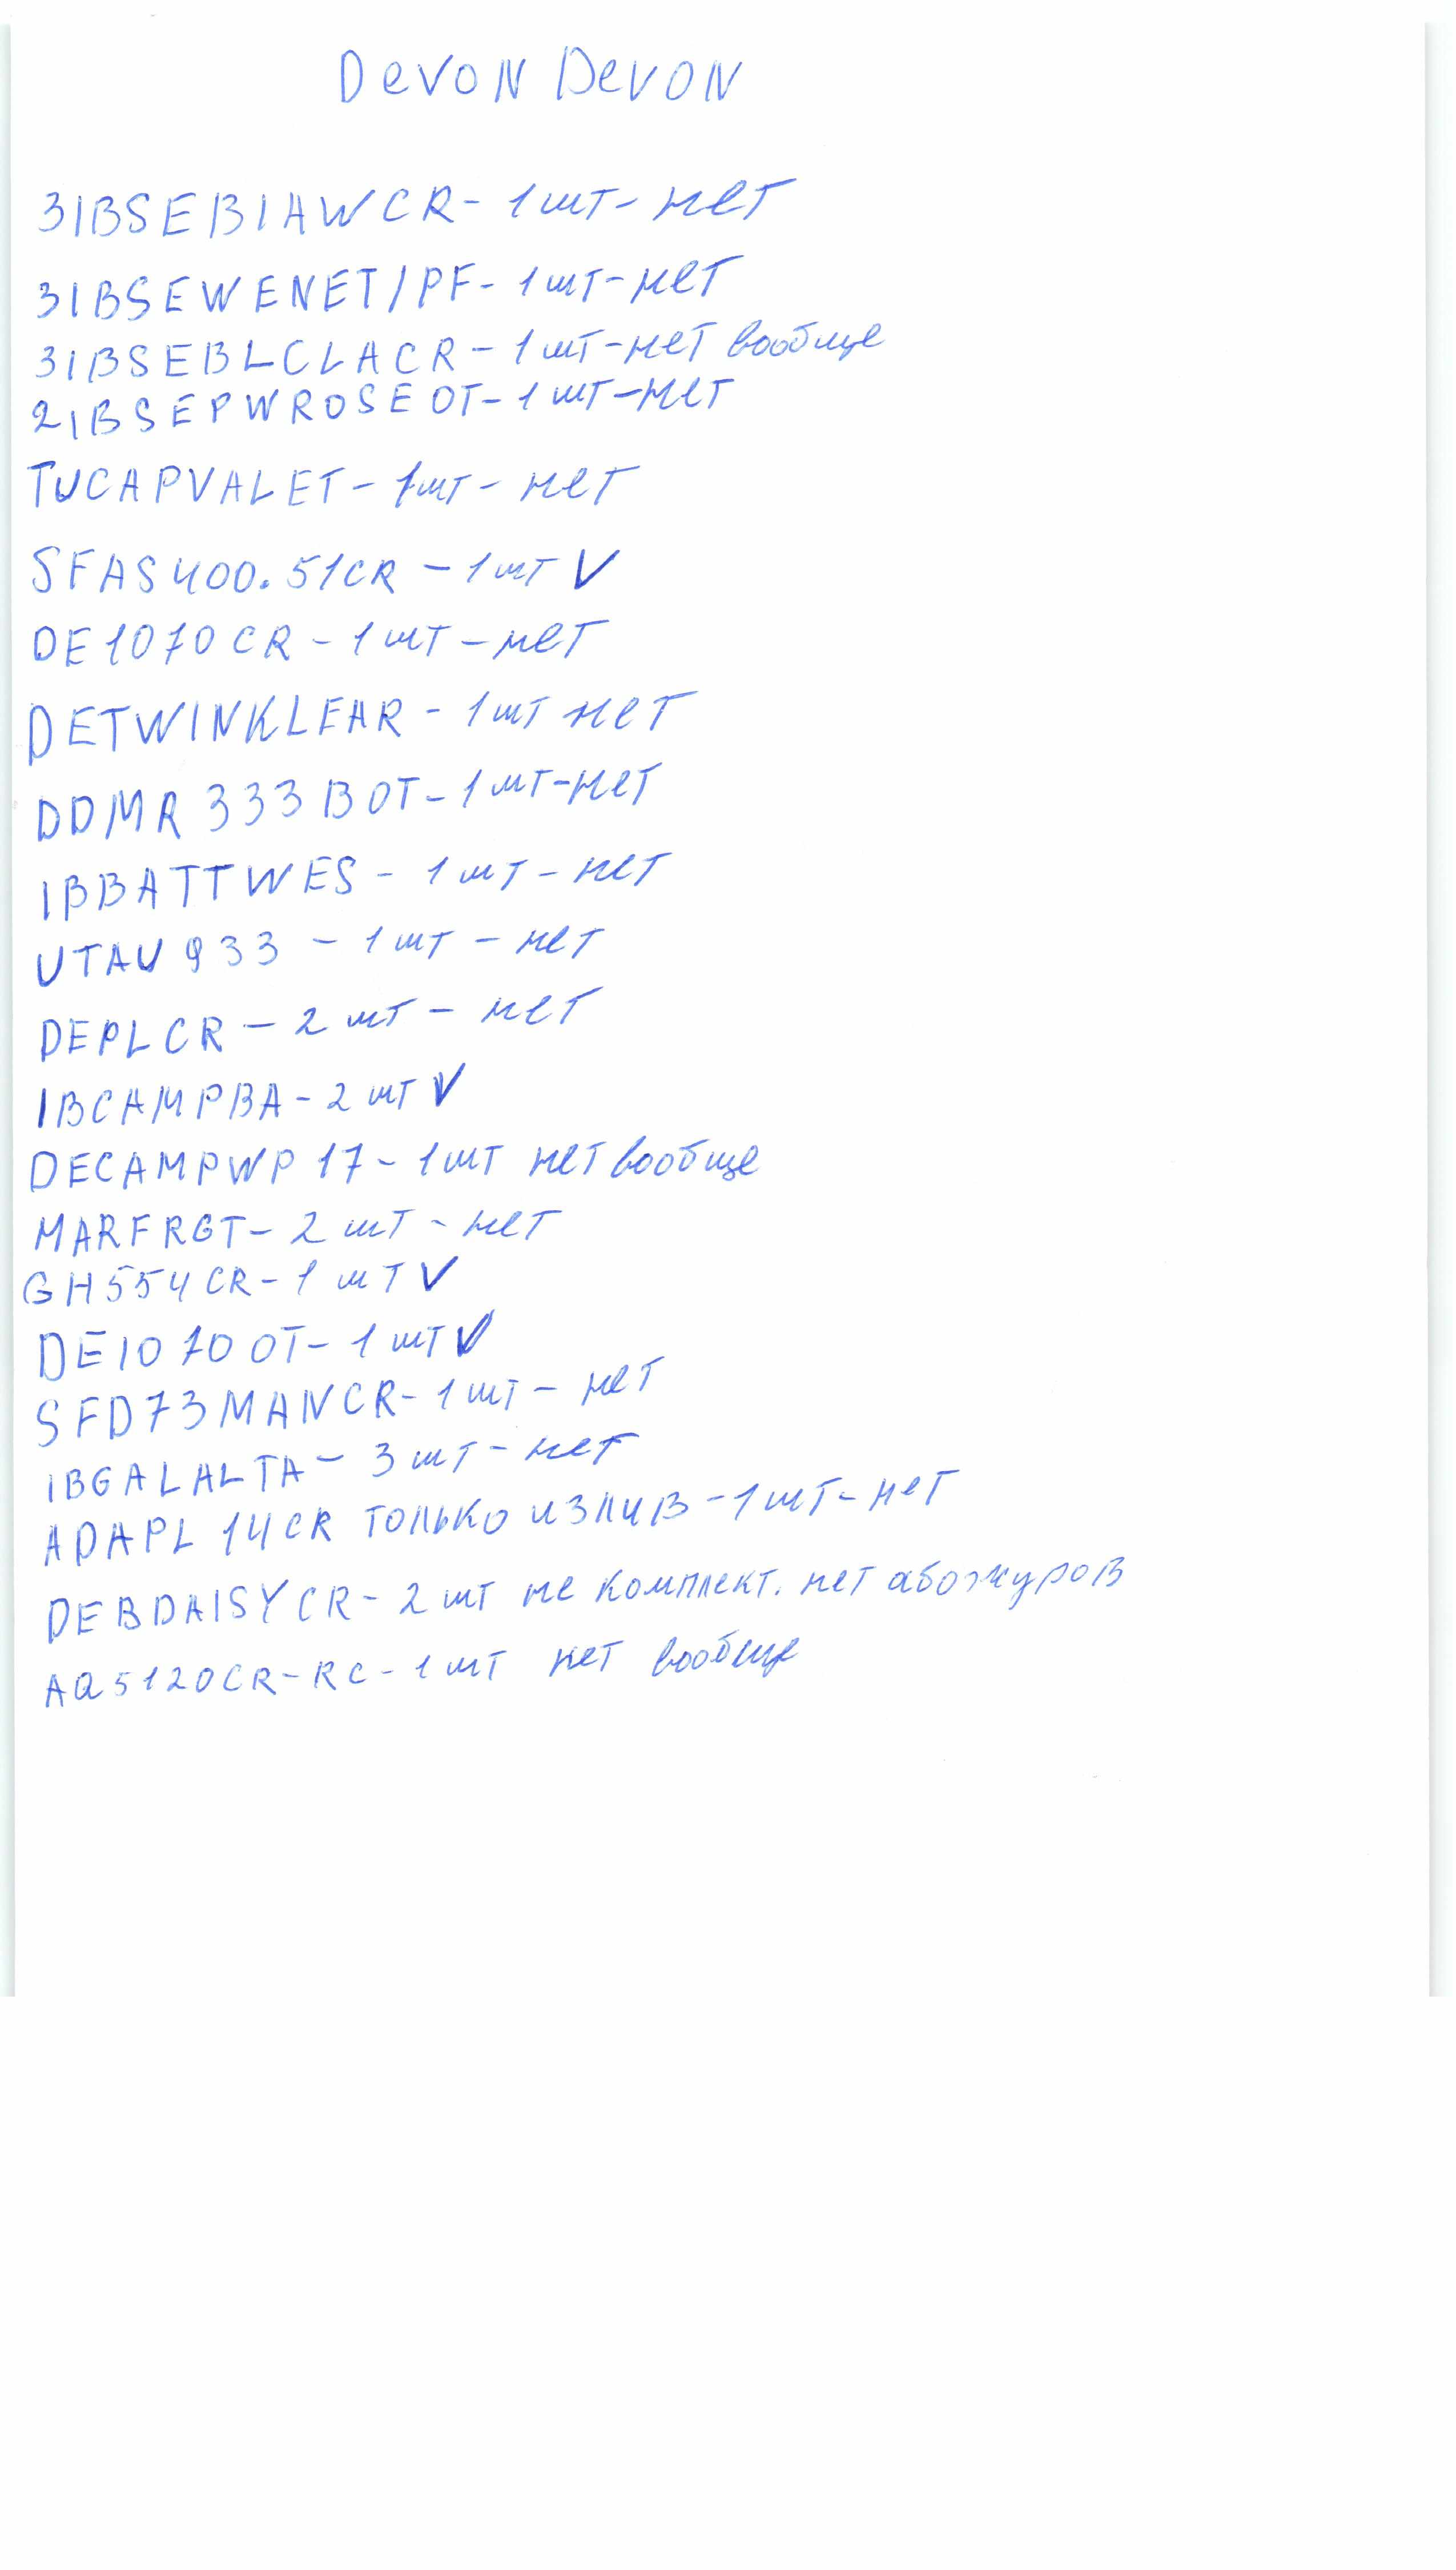 Devon Devon
3IBSEBIAWCR- 1шт- нет
3IBSEWENET/PF- 1шт-нет
3IBSEBLCLACR- 1шт-нет вообще
2IBSEPWROSEOT- 1шт-нет
TUCAPVALET- 1шт- нет
SFAS400.51CR - 1шт V
DE1070CR - 1шт - нет
DETWINKLEAR - 1шт нет
DDMR333BOT- 1шт-нет
IBBATTWES - 1шт - нет
UTAU933 - 1шт - нет
DEPLCR - 2шт - нет
IBCAMPBA- 2шт V
DECAMPWP17- 1шт нет вообще
MARFRGT- 2шт - нет
GH554CR- 1шт V
DE1070OT- 1шт V
SFD73MANCR- 1шт - нет
IBGALALTA- 3шт - нет
ADAPL14CR только излив - 1шт- нет
DEBDAISYCR- 2шт не комплект. нет абожуров
AQ5120CR-RC- 1шт нет вообще